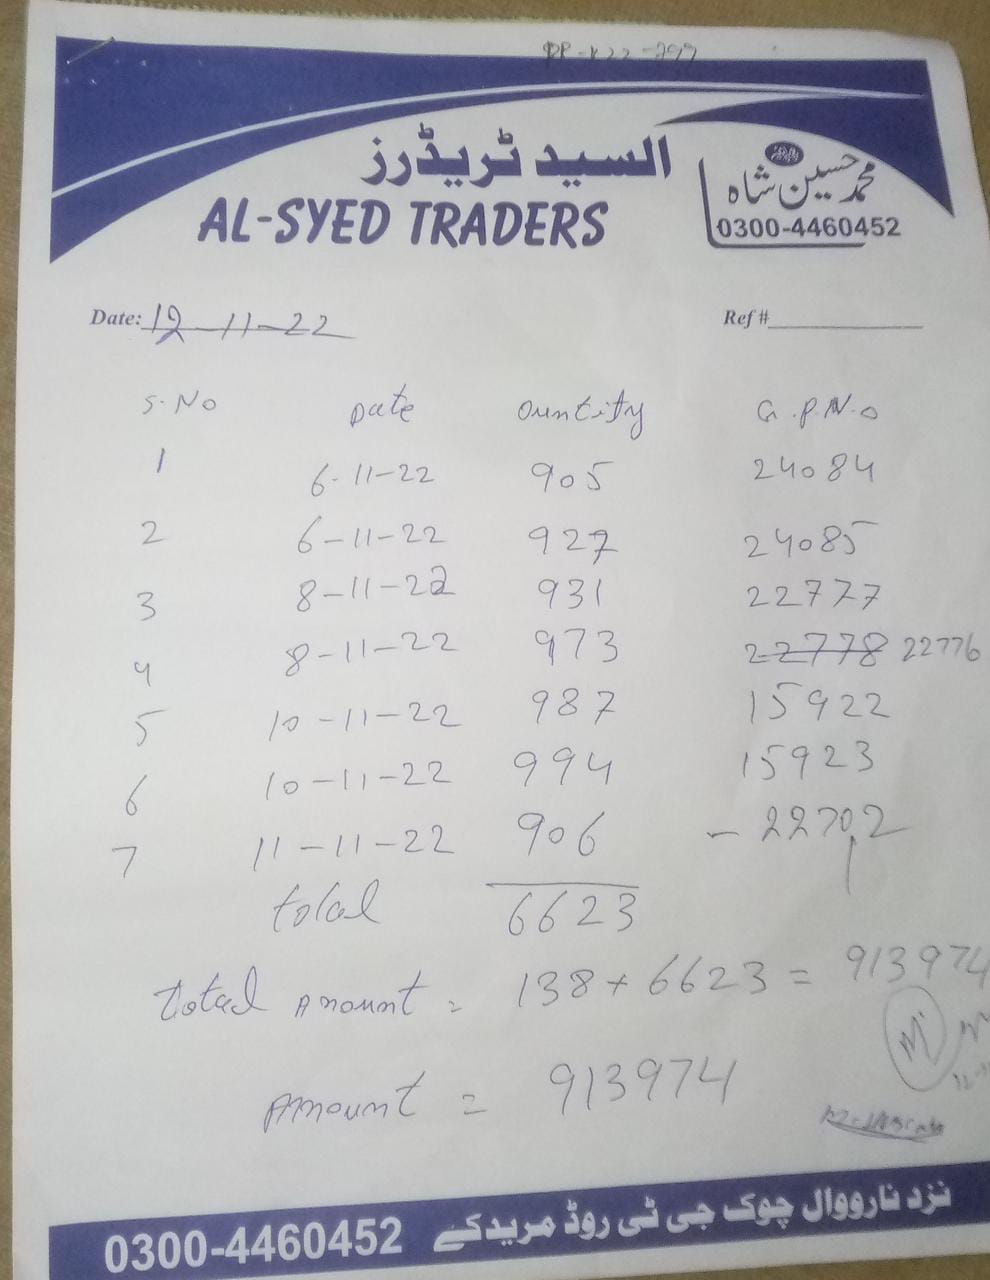 السید ٹریڈرز
AL-SYED TRADERS
محمد حسین شاہ
0300-4460452
Date: 12-11-22
Ref #
S.No Date Ountity G.P.N.o
1 6-11-22 905 24084
2 6-11-22 927 24085
3 8-11-22 931 22777
4 8-11-22 973 22778 22776
5 10-11-22 987 15922
6 10-11-22 994 15923
7 11-11-22 906 - 22702
total 6623
total Amount = 138+6623 = 913974
Amount = 913974
نزد نارووال چوک جی ٹی روڈ مریدکے 0300-4460452